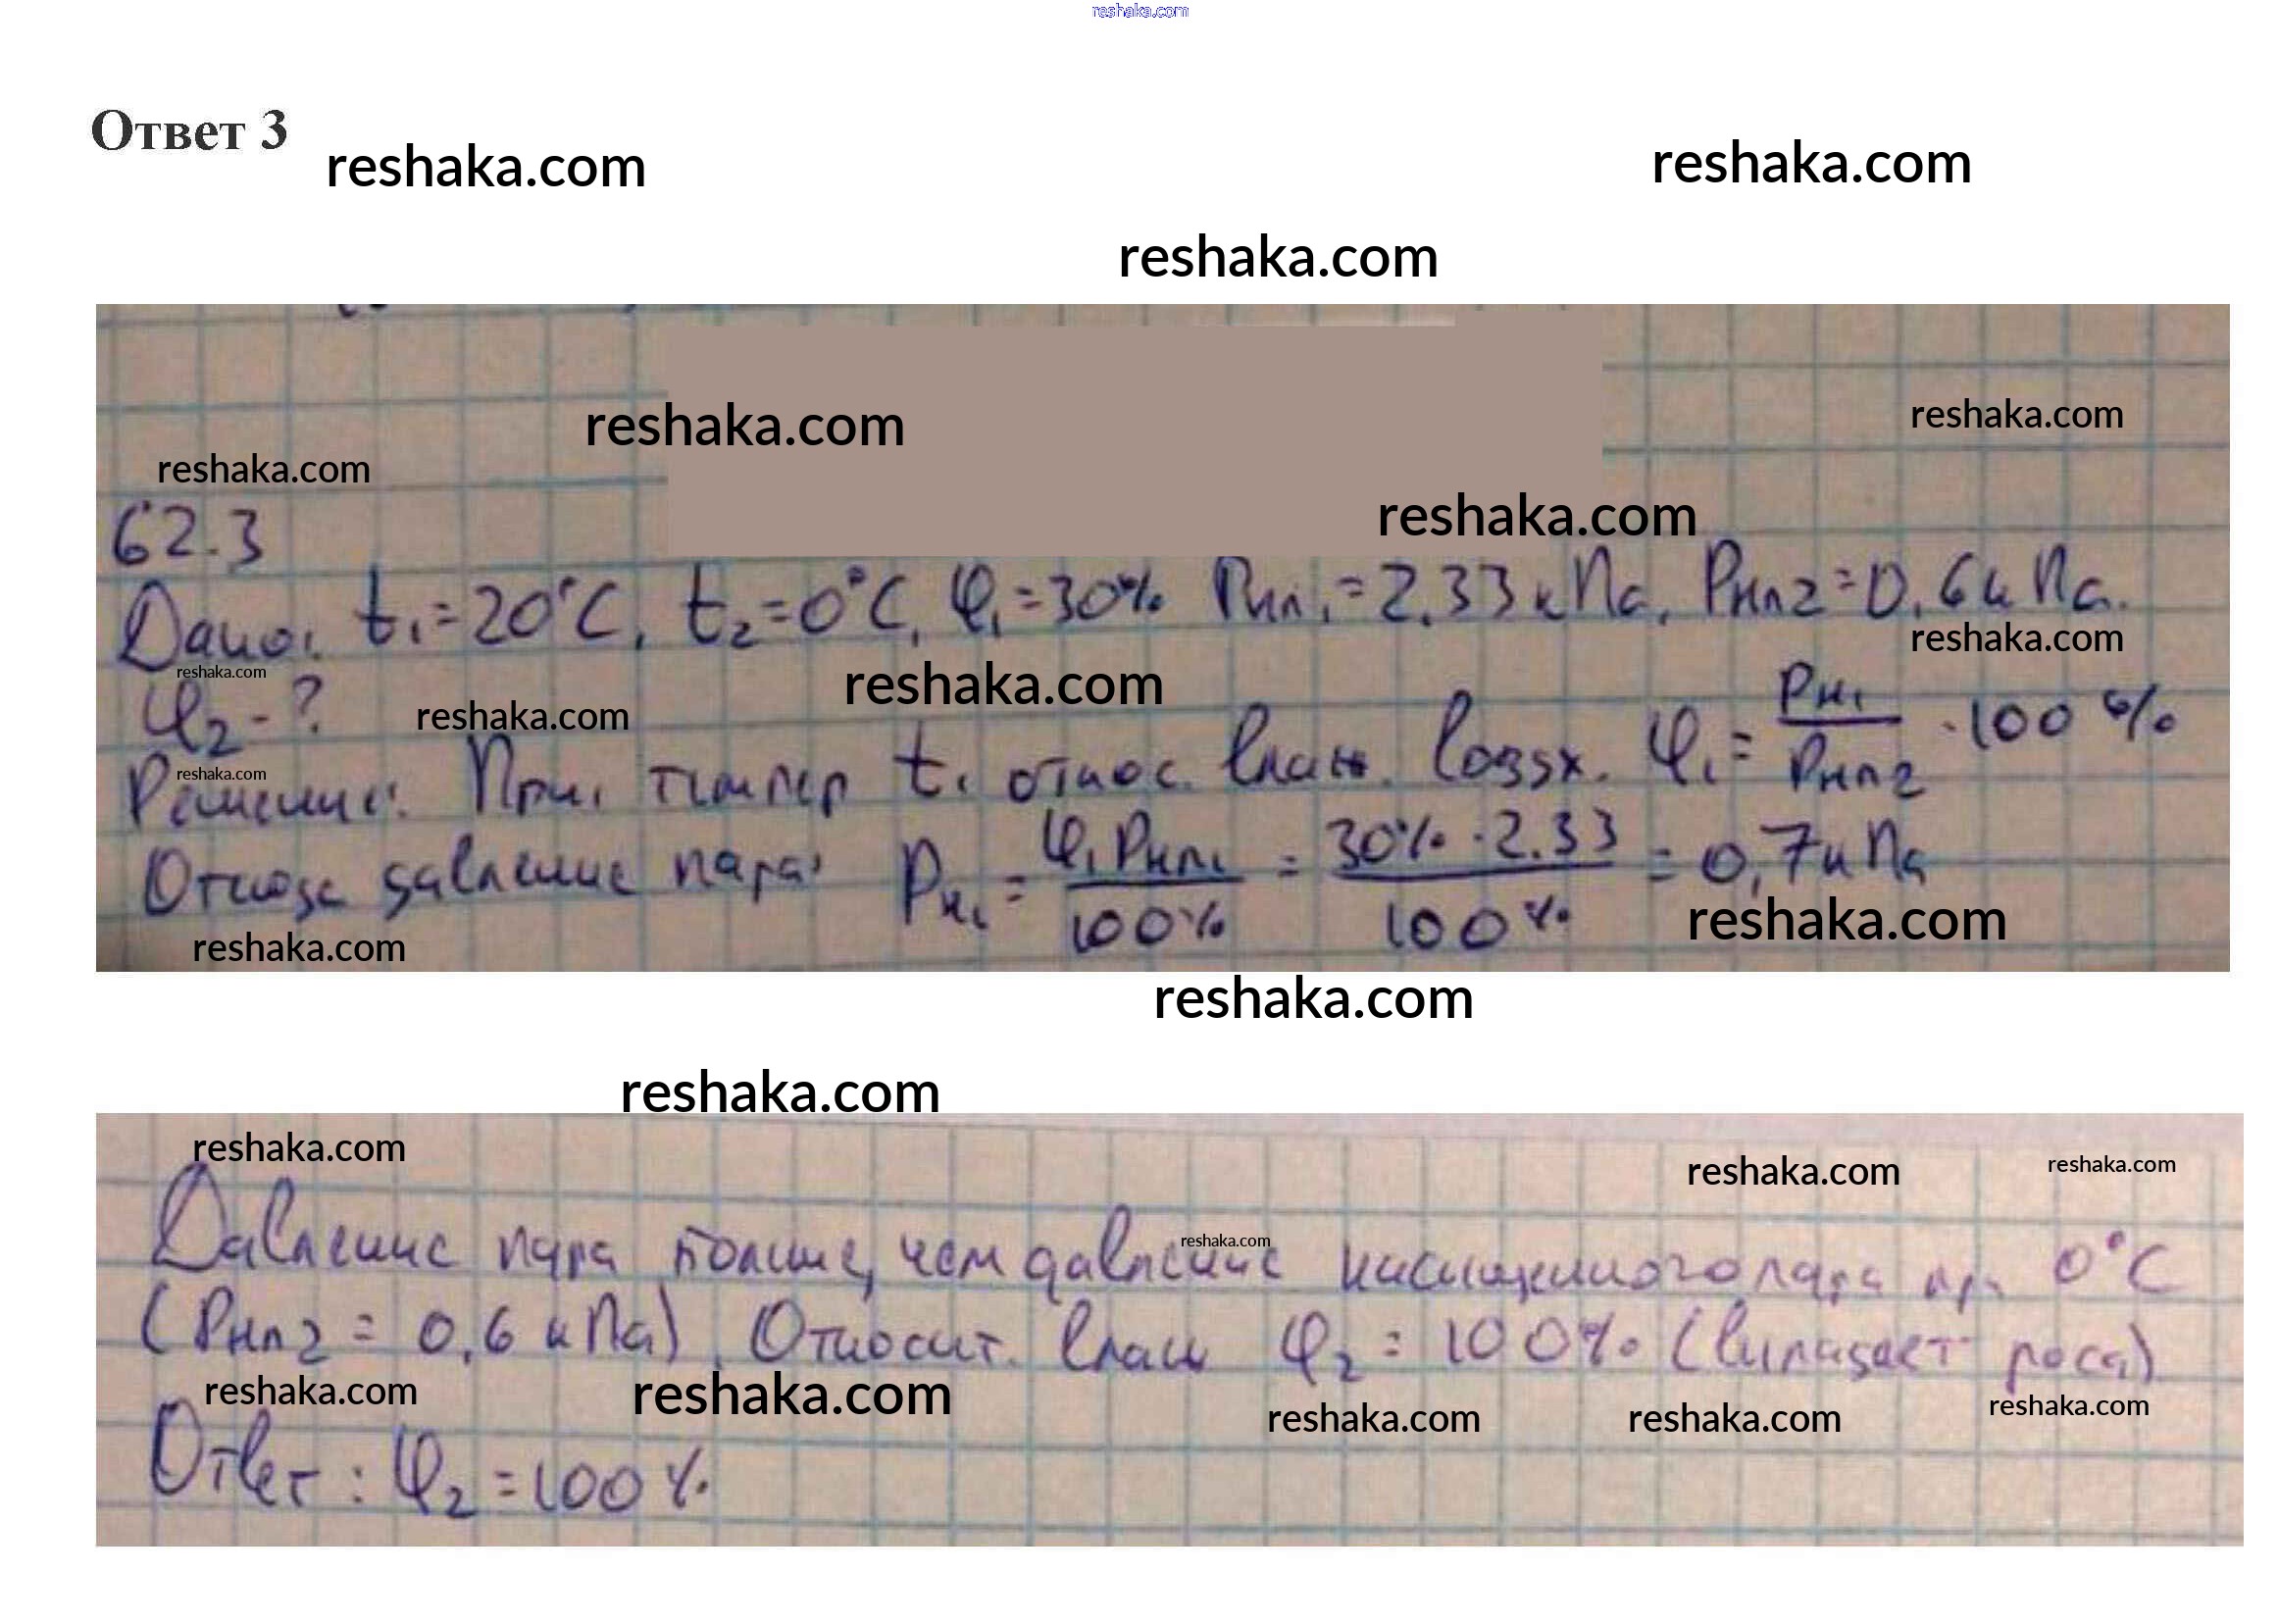 reshaka.com
Ответ 3
reshaka.com reshaka.com
reshaka.com
reshaka.com reshaka.com
reshaka.com
reshaka.com
62.3
Дано: t₁=20°C, t₂=0°C, φ₁=30% Pнп₁=2.33кПа, Pнп2=0,6кПа.
reshaka.com
reshaka.com reshaka.com
φ₂-? reshaka.com
reshaka.com
Решение: При темпер t₁ относ. влаж. возд. φ₁ = Pн₁/Pнп2 · 100%
Отсюда давление пара: Pн₁ = φ₁Pнп₁/100% = 30%·2.33/100% = 0,7кПа
reshaka.com reshaka.com
reshaka.com
reshaka.com
reshaka.com reshaka.com reshaka.com
reshaka.com
Давление пара больше, чем давление насыщенного пара при 0°C
(Pнп2 = 0,6 кПа). Относит. влаж φ₂ = 100% (выпадает роса)
reshaka.com reshaka.com reshaka.com reshaka.com reshaka.com
Ответ: φ₂=100%